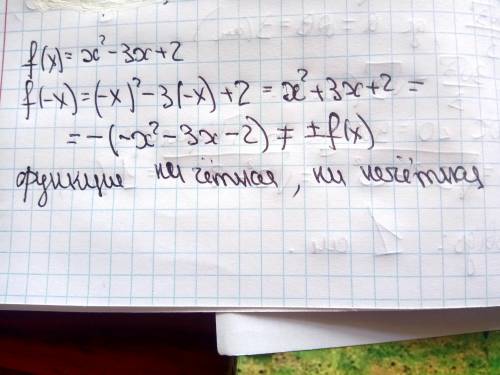 f(x) = x² - 3x + 2
f(-x) = (-x)² - 3(-x) + 2 = x² + 3x + 2 =
= -(-x² - 3x - 2) ≠ ±f(x)
функция ни чётная, ни нечётная